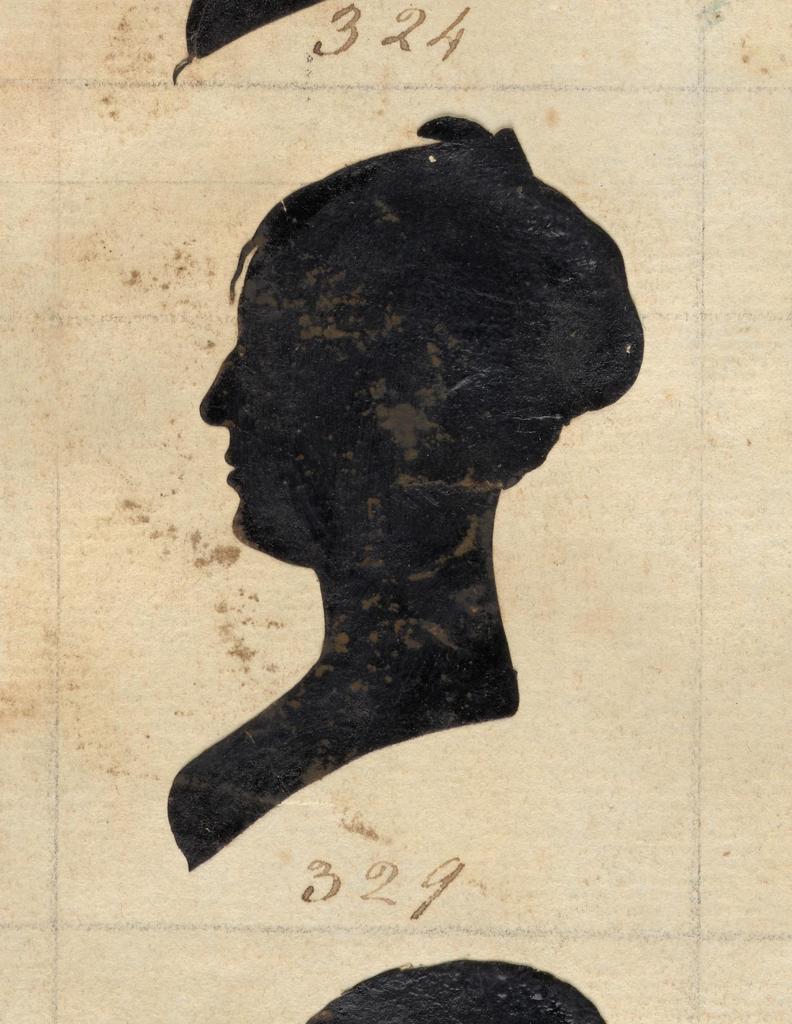 324
329